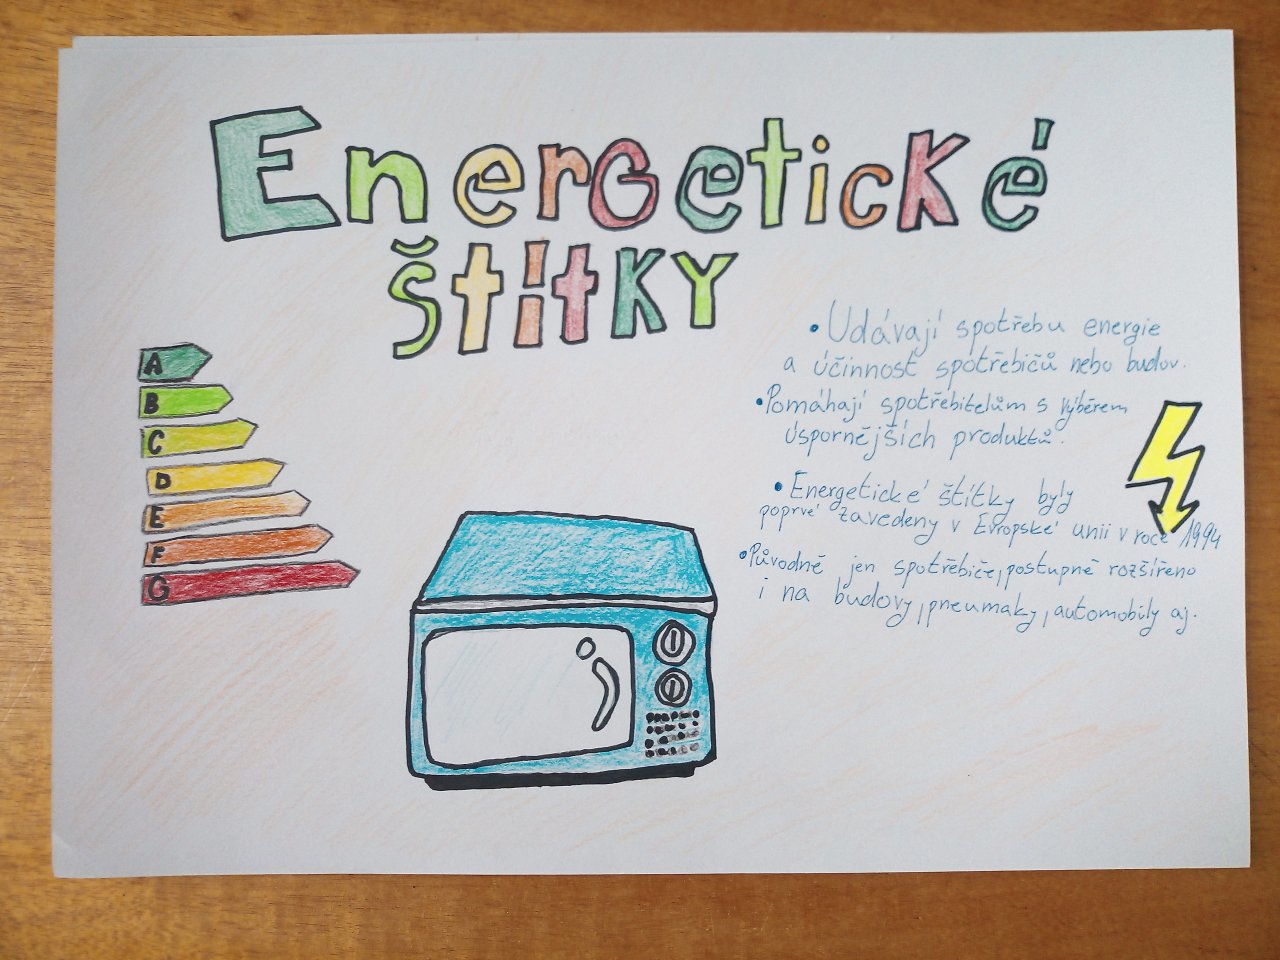 Energetické
štítky
A
B
C
D
E
F
G
• Udávají spotřebu energie
a účinnost spotřebičů nebo budov.
• Pomáhají spotřebitelům s výběrem
úspornějších produktů.
• Energetické štítky byly
poprvé zavedeny v Evropské unii v roce 1994
• Původně jen spotřebiče, postupně rozšířeno
i na budovy, pneumaky, automobily aj.